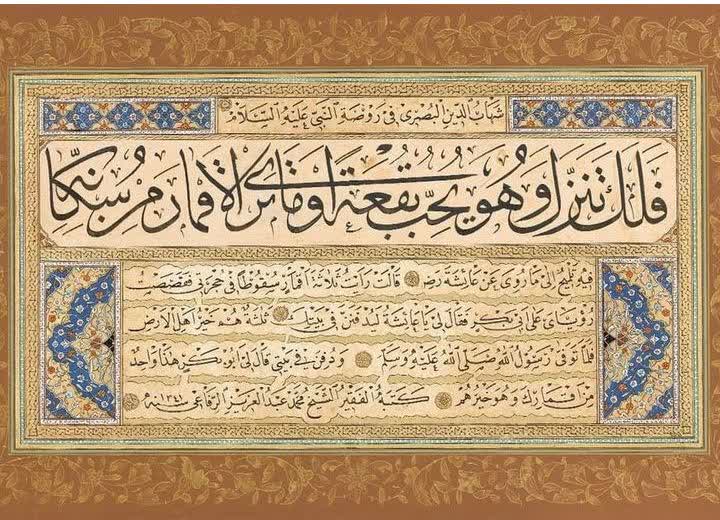 شهاب الدين البصرى فى روضة النبى عليه السلام
فلك تنزل وهو يحسب بقعة او ما ترى الاقمار من سكانها
فيه تلميح الى ما روى عن عائشة رضـ قالت رأيت ثلاثة اقمار سقوطا فى حجرتى فقصصت
رؤياى على ابى بكر فقال لى يا عائشة ليدفنن فى بيتك ثلثة هم خير اهل الارض
فلما توفى رسول الله صلى الله عليه وسلم ودفن فى بيتى قال لى ابو بكر هذا واحد
من اقمارك وهو خيرهم كتبه الفقير الشيخ محمد عبد العزيز الرفاعى سنه ١٣٤١